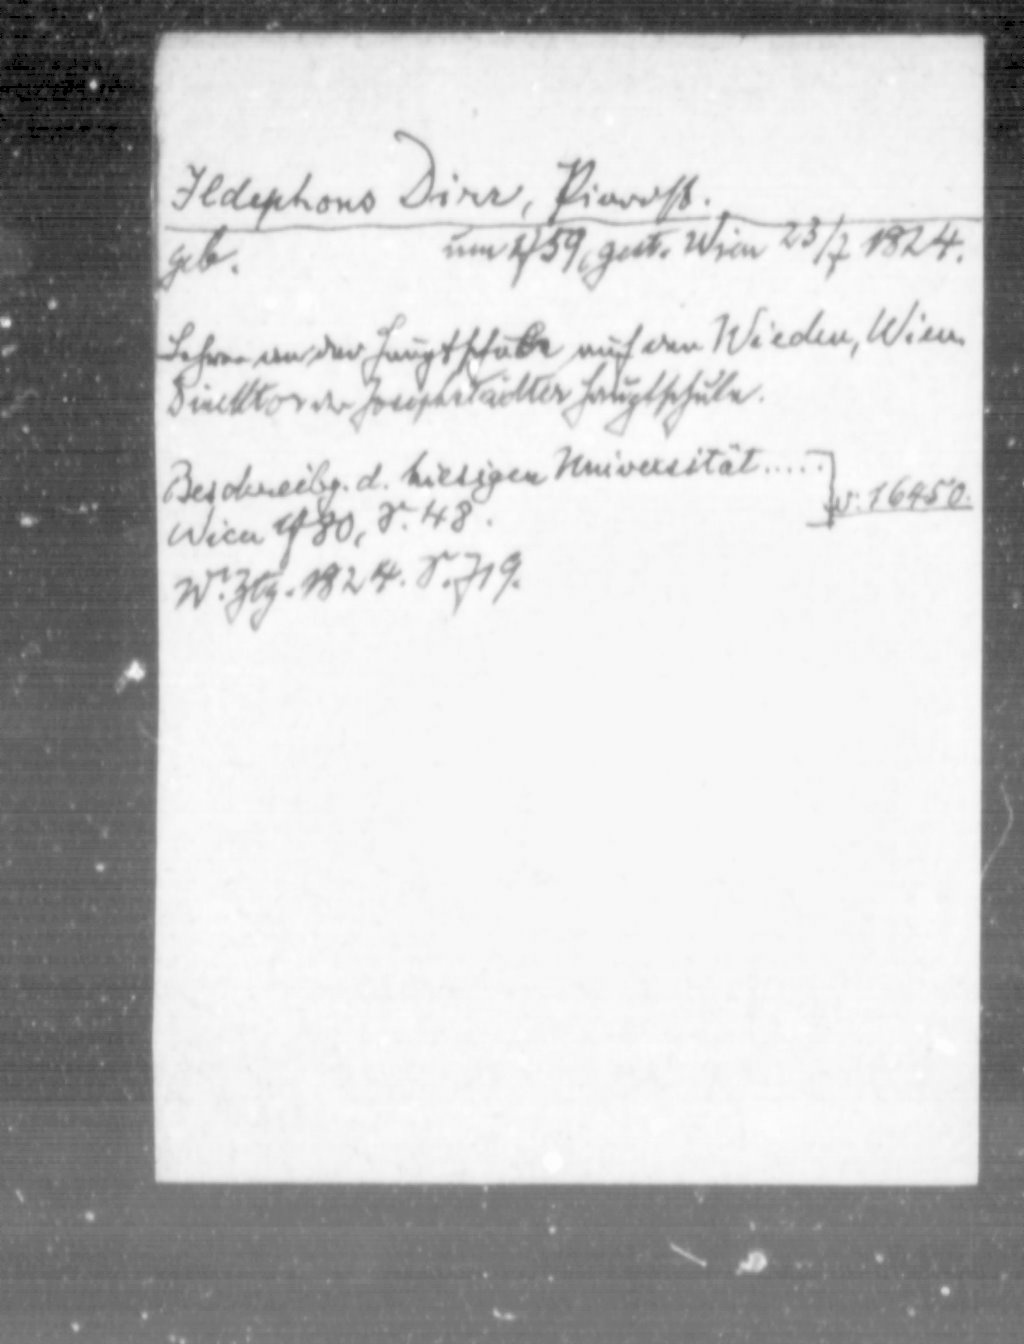 Ildephons Dirr, Piarist.
geb. um 1759, gest. Wien 23/7 1824.
Lehrer an der Hauptschule auf der Wieden, Wien.
Direktor der Josephstädter Hauptschule.
Beschreibg. d. hiesigen Universität.....
Wien 1780, S. 48.
v. 16450.
W. Ztg. 1824. S. 719.